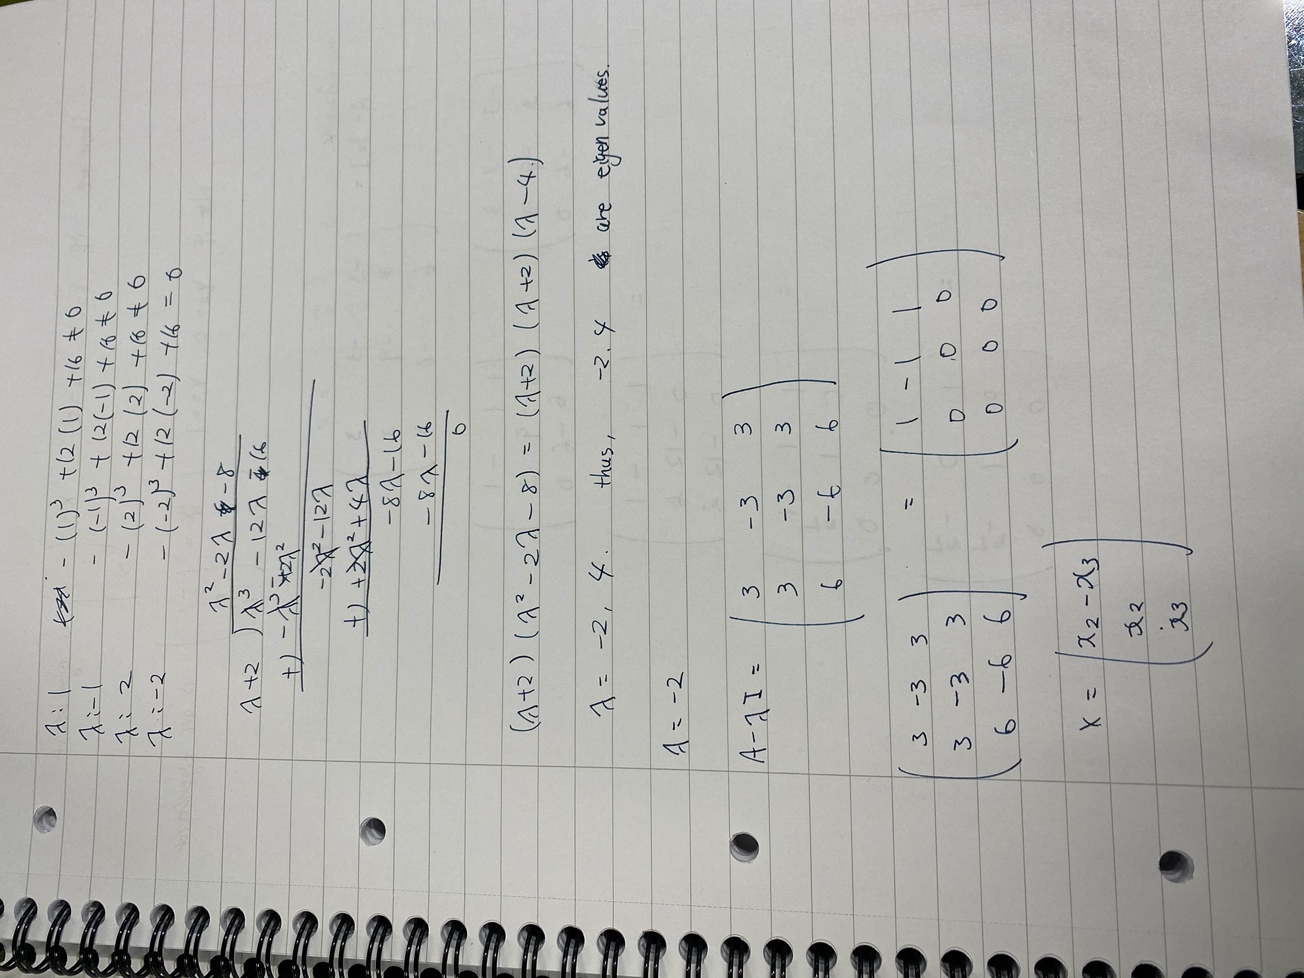 λ:1 - (1)³ + 12 (1) + 16 ≠ 0
λ:-1 - (-1)³ + 12(-1) + 16 ≠ 0
λ: 2 - (2)³ + 12 (2) + 16 ≠ 0
λ:-2 - (-2)³ + 12 (-2) + 16 = 0
λ² - 2λ - 8
λ+2 ) λ³ - 12λ - 16
+) - λ³ - 2λ²
-2λ² - 12λ
+) +2λ² + 4λ
-8λ - 16
-8λ - 16
0
(λ+2) (λ² - 2λ - 8) = (λ+2) (λ+2) (λ-4)
λ = -2, 4. thus, -2, 4 are eigen values.
λ = -2
A-λI = ( 3 -3 3
3 -3 3
6 -6 6 )
( 3 -3 3 ) = ( 1 -1 1 )
3 -3 3 0 0 0
6 -6 6 0 0 0
x = ( x₂ - x₃
x₂
x₃ )